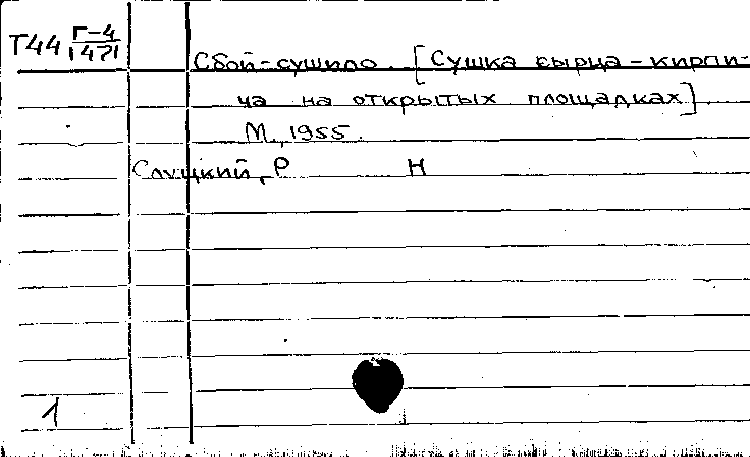 Т44 Г-4
1471
Сбой-сушило. [Сушка сырца-кирпи-
ча на открытых площадках]
М., 1955.
Слуцкий, Р Н
1